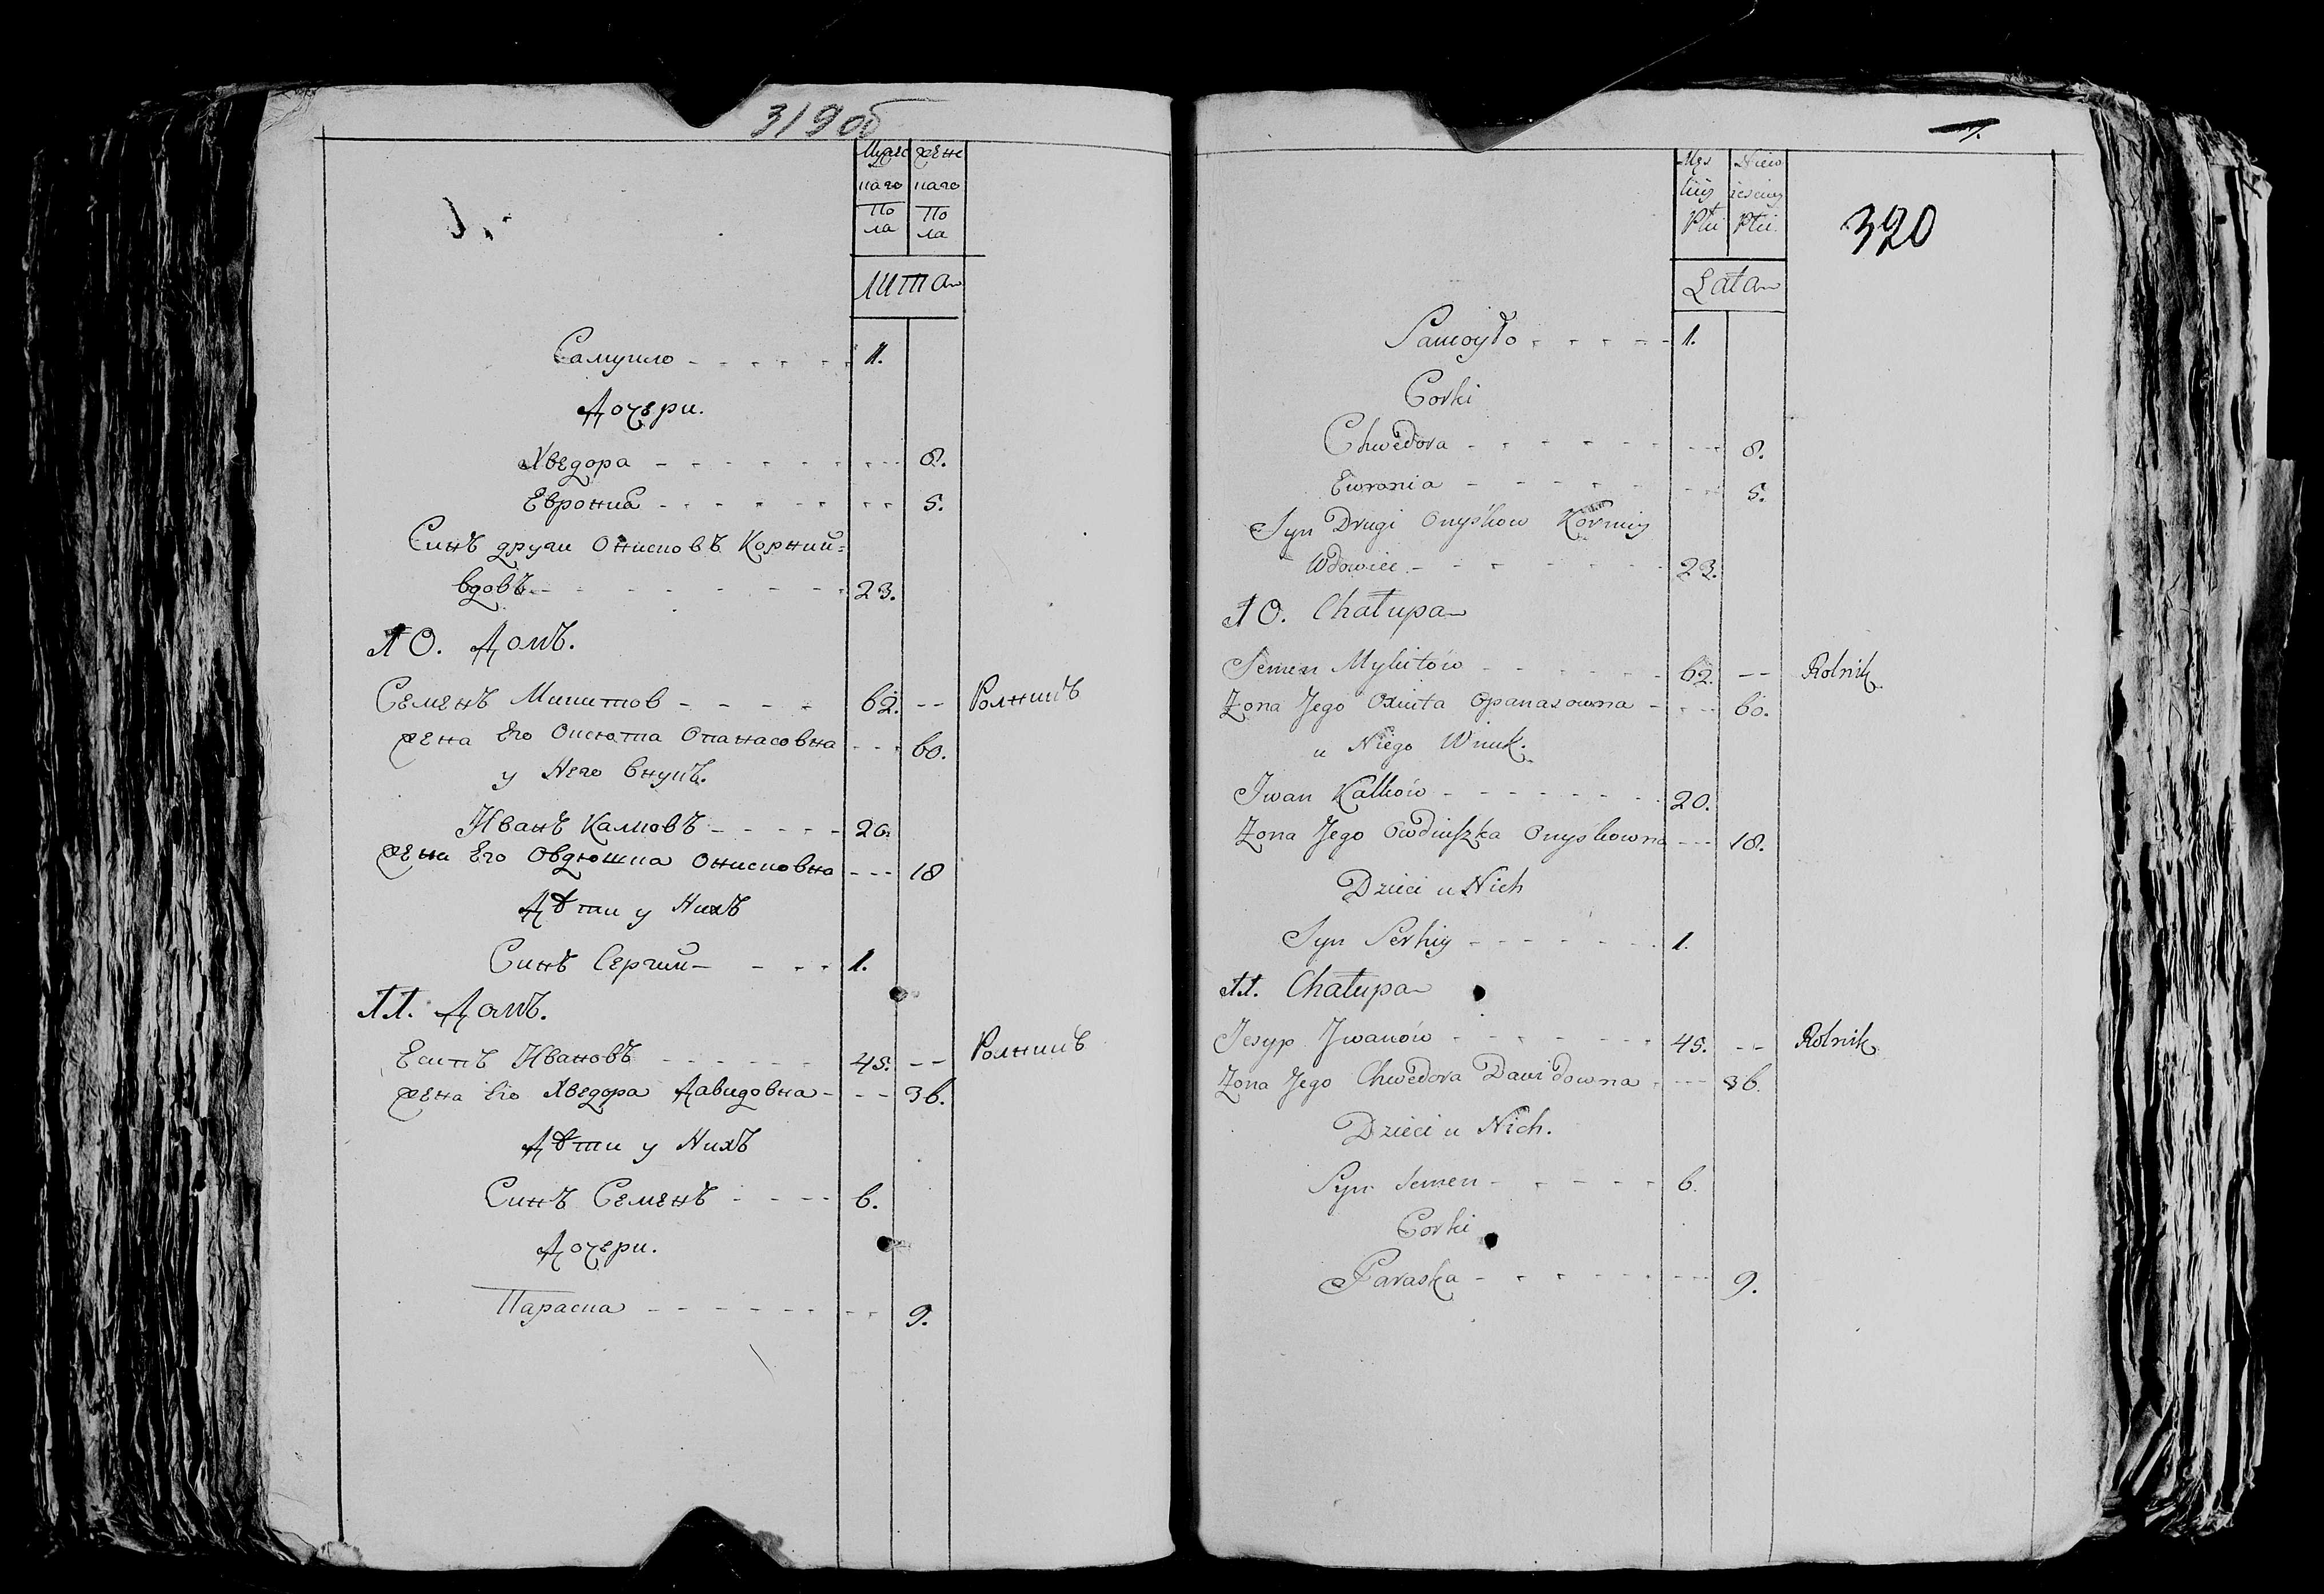 319об
Мужес жене
каго каго
По По
ла ла
лита
Самуило - - - - - - 1.
Дочери.
Хведора - - - - - - - - 8.
Еврониа - - - - - - - - 5.
Синъ други Онисковъ Корний=
вдовъ - - - - - - - - 23.
10. Домъ.
Семенъ Микитов - - - - 62. -- Ролникъ
жена Его Оксюта Опанасовна - - - 60.
у Него внукъ.
Иванъ Калковъ - - - - - 20.
жена Его Овдюшка Онисковна - - - 18
Дѣти у Нихъ
Синъ Сергий - - - - 1.
11. Домъ.
Есипъ Ивановъ - - - - - - 45. -- Ролникъ
жена Его Хведора Давидовна - - - 36.
Дѣти у Нихъ
Синъ Семенъ - - - - 6.
Дочери.
Параска - - - - - - - - - 9.
7.
320
Męs Niew
kiey iesciey
Płci Płci
Lata
Samoyło - - - - - 1.
Corki
Chwedora - - - - - - - - 8.
Ewronia - - - - - - - 5.
Syn Drugi Onyśkow Korniey
Wdowiec - - - - - - - 23.
10. Chałupa
Semen Mykitów - - - - - - 62. -- Rolnik
Żona Jego Oxiuta Opanasowna - - - - 60.
u Niego Wnuk.
Iwan Kalków - - - - - - - 20.
Żona Jego Owdiuszka Onyśkowna - - - 18.
Dzieci u Nich
Syn Serhiy - - - - - - - 1.
11. Chałupa
Jesyp Jwanów - - - - - - - 45. -- Rolnik
Żona Jego Chwedora Dawidowna - - - 36.
Dzieci u Nich.
Syn Semen - - - - - - 6.
Corki
Paraska - - - - - - - - - 9.